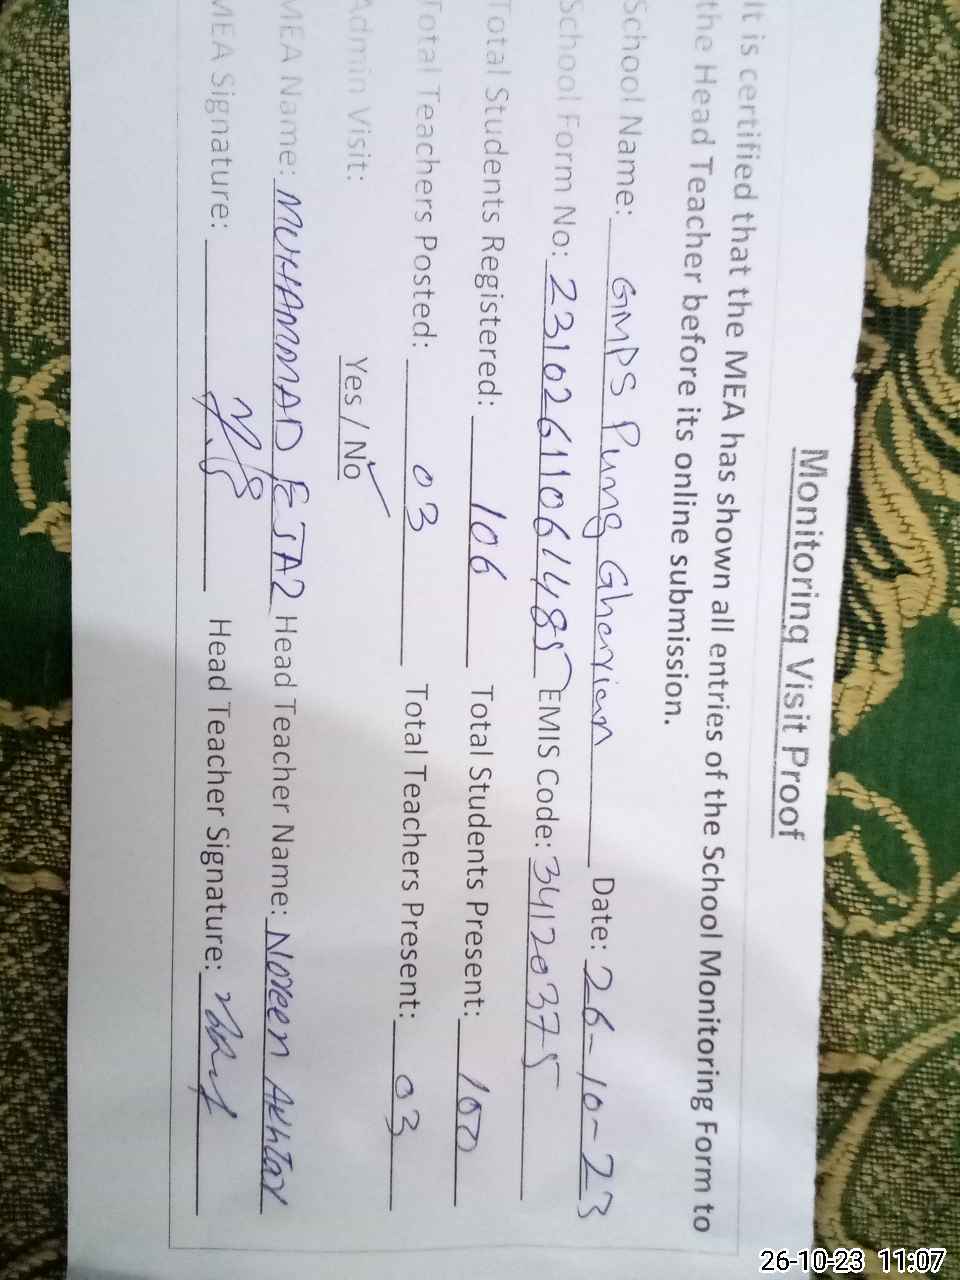 Monitoring Visit Proof
It is certified that the MEA has shown all entries of the School Monitoring Form to
the Head Teacher before its online submission.
School Name: GMPS Pung Gharian Date: 26-10-23
School Form No: 231026110614485 EMIS Code: 34120375
Total Students Registered: 106 Total Students Present: 100
Total Teachers Posted: 03 Total Teachers Present: 03
Admin Visit: Yes / No ✓
MEA Name: MUHAMMAD EJAZ Head Teacher Name: Noreen Akhtar
MEA Signature: Head Teacher Signature:
26-10-23 11:07